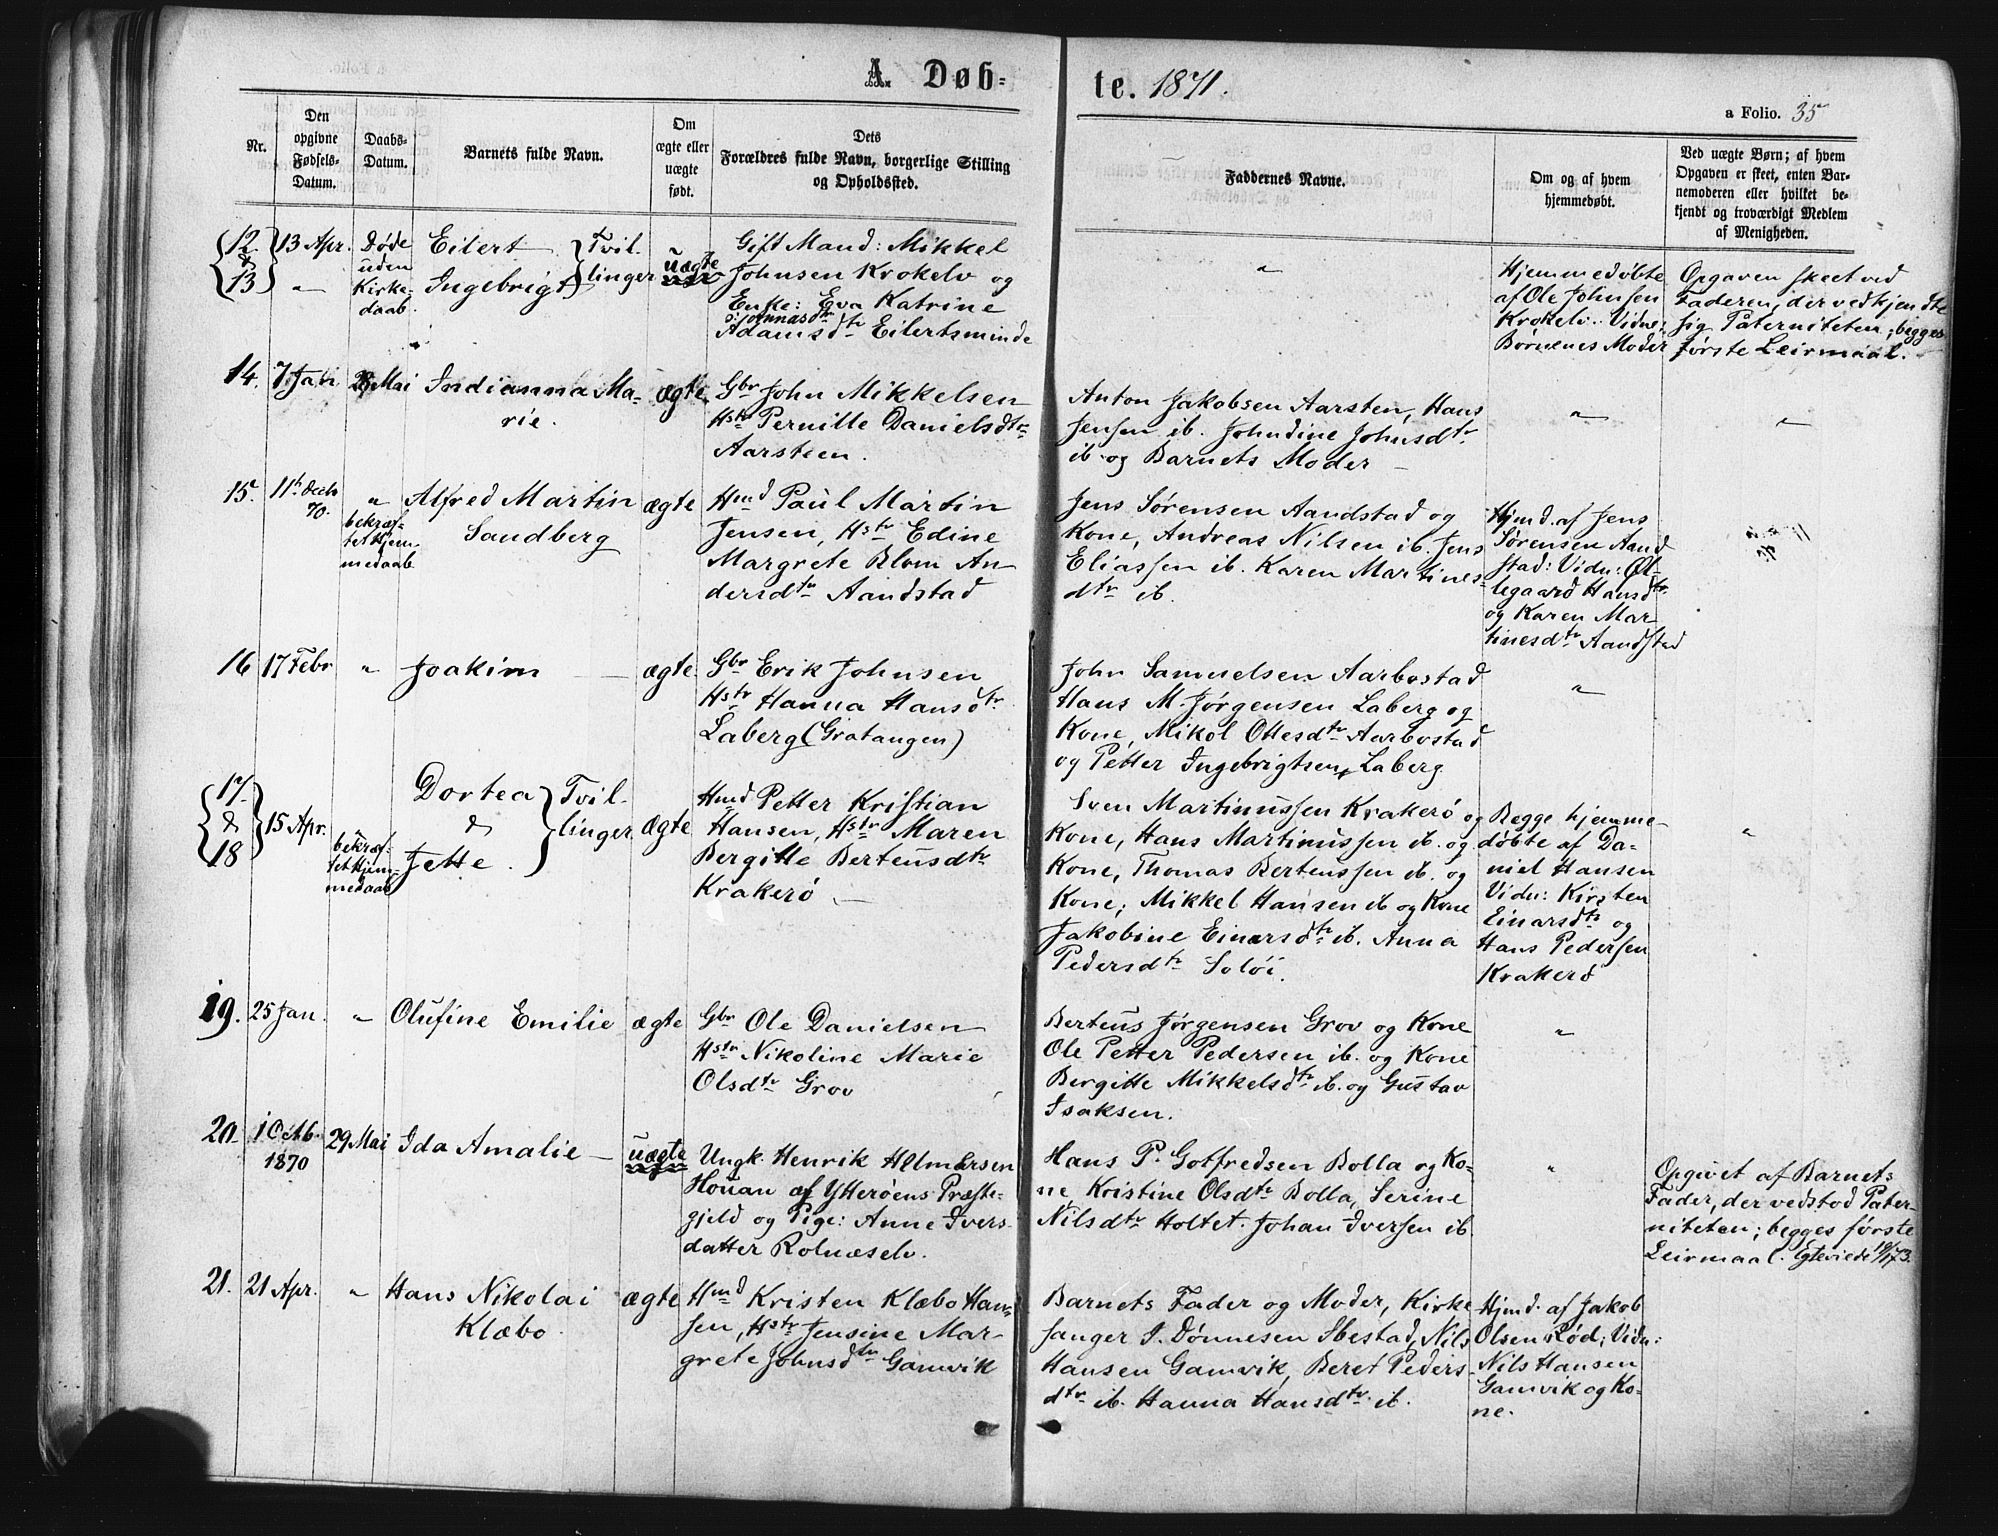 A. Døb-
te. 1871.
a Folio. 35
Nr.
Den
opgivne
Fødsels-
Datum.
Daabs-
Datum.
Barnets fulde Navn.
Om
ægte eller
uægte
født.
Dets
Forældres fulde Navn, borgerlige Stilling
og Opholdssted.
Faddernes Navne.
Om og af hvem
hjemmedøbt.
Ved uægte Børn; af hvem
Opgaven er skeet, enten Bar-
nemoderen eller hvilket be-
kjendt og troværdigt Medlem
af Menigheden.
12
&
13
13 Apr.
"
Døde
uden
Kirke-
daab.
Eilert
Ingebrigt
Tvil-
linger
uægte
Gift Mand: Mikkel
Johnsen Krokelv og
Enke: Eva Katrine
Adamsdtr Eilertsminde
"
Hjemmedøbte
af Ole Johnsen
Krokelv. Vidne:
Børnenes Moder
Opgaven skeet ved
Faderen, der vedkjendte
sig Paterniteten; begges
første Leirmaal.
14.
7 Jan
28 Mai
Indianna Ma-
rie.
ægte
Gbr John Mikkelsen
Hstr Pernille Danielsdtr
Aarsteen.
Anton Jakobsen Aarsten, Hans
Jensen ib. Johndine Johnsdtr
ib. og Barnets Moder
"
"
15.
11te Decb
70.
"
bekræf-
tet Hjem-
medaab
Alfred Martin
Sandberg
ægte
Hmd Paul Martin
Jensen, Hstr Edine
Margrete Blom An-
dersdtr Aandstad
Jens Sørensen Aandstad og
Kone, Andreas Nilsen ib. Jens
Eliassen ib. Karen Martines-
dtr ib.
Hjmd. af Jens
Sørensen Aand
stad: Vidn: Ol-
legaard Hansdtr
og Karen Mar
tinesdtr Aandstad
16
17 Febr
"
Joakim
ægte
Gbr Erik Johnsen
Hstr Hanna Hansdtr
Laberg (Gratangen)
John Samuelsen Aarbostad
Hans M. Jørgensen Laberg og
Kone, Mikol Ottesdtr Aarbostad
og Petter Ingebrigtsen Laberg
"
17
&
18
15 Apr.
"
bekræf-
tet Hjem-
medaab
Dortea
&
Jette.
Tvil-
linger
ægte
Hmd Petter Kristian
Hansen, Hstr Maren
Bergitte Berteusdtr
Krakerø
Sven Martinussen Krakerø og
Kone, Hans Martinussen ib. og
Kone, Thomas Berteussen ib. og
Kone; Mikkel Hansen ib og Kone
Jakobine Einarsdtr ib. Anna
Pedersdtr Soløi.
Begge hjemme-
døbte af Da-
niel Hansen
Vidn: Kirsten
Einarsdtr og
Hans Pedersen
Krakerø
"
19.
25 Jan.
"
Olufine Emilie
ægte
Gbr Ole Danielsen
Hstr Nikoline Marie
Olsdtr Grov
Berteus Jørgensen Grov og Kone
Ole Petter Pedersen ib. og Kone
Bergitte Mikkelsdtr ib. og Gustav
Isaksen.
"
20.
1 Octb.
1870
29 Mai
Ida Amalie
uægte
Ungk. Henrik Helmersen
Houan af Ytterøens Præste-
gjeld og Pige: Anne Ivers-
datter Rolnæselv.
Hans P. Gotfredsen Bolla og Ko-
ne, Kristine Olsdtr Bolla, Serine
Nilsdtr Holtet. Johan Iversen ib.
"
Opgivet af Barnets
Fader, der vedstod Pater-
niteten; begges første
Leirmaal.
21.
21 Apr.
"
Hans Nikolai
Klæbo
ægte
Hmd Kristen Klæbo Han-
sen, Hstr Jensine Mar-
grete Johnsdtr Gamvik
Barnets Fader og Moder, Kirke
sanger I. Dønnesen Ibestad, Nils
Hansen Gamvik, Beret Peders-
dtr ib. Hanna Hansdtr ib.
Hjmd. af Jakob
Olsen Rød; Vidn:
Nils Hansen
Gamvik og Ko-
ne.